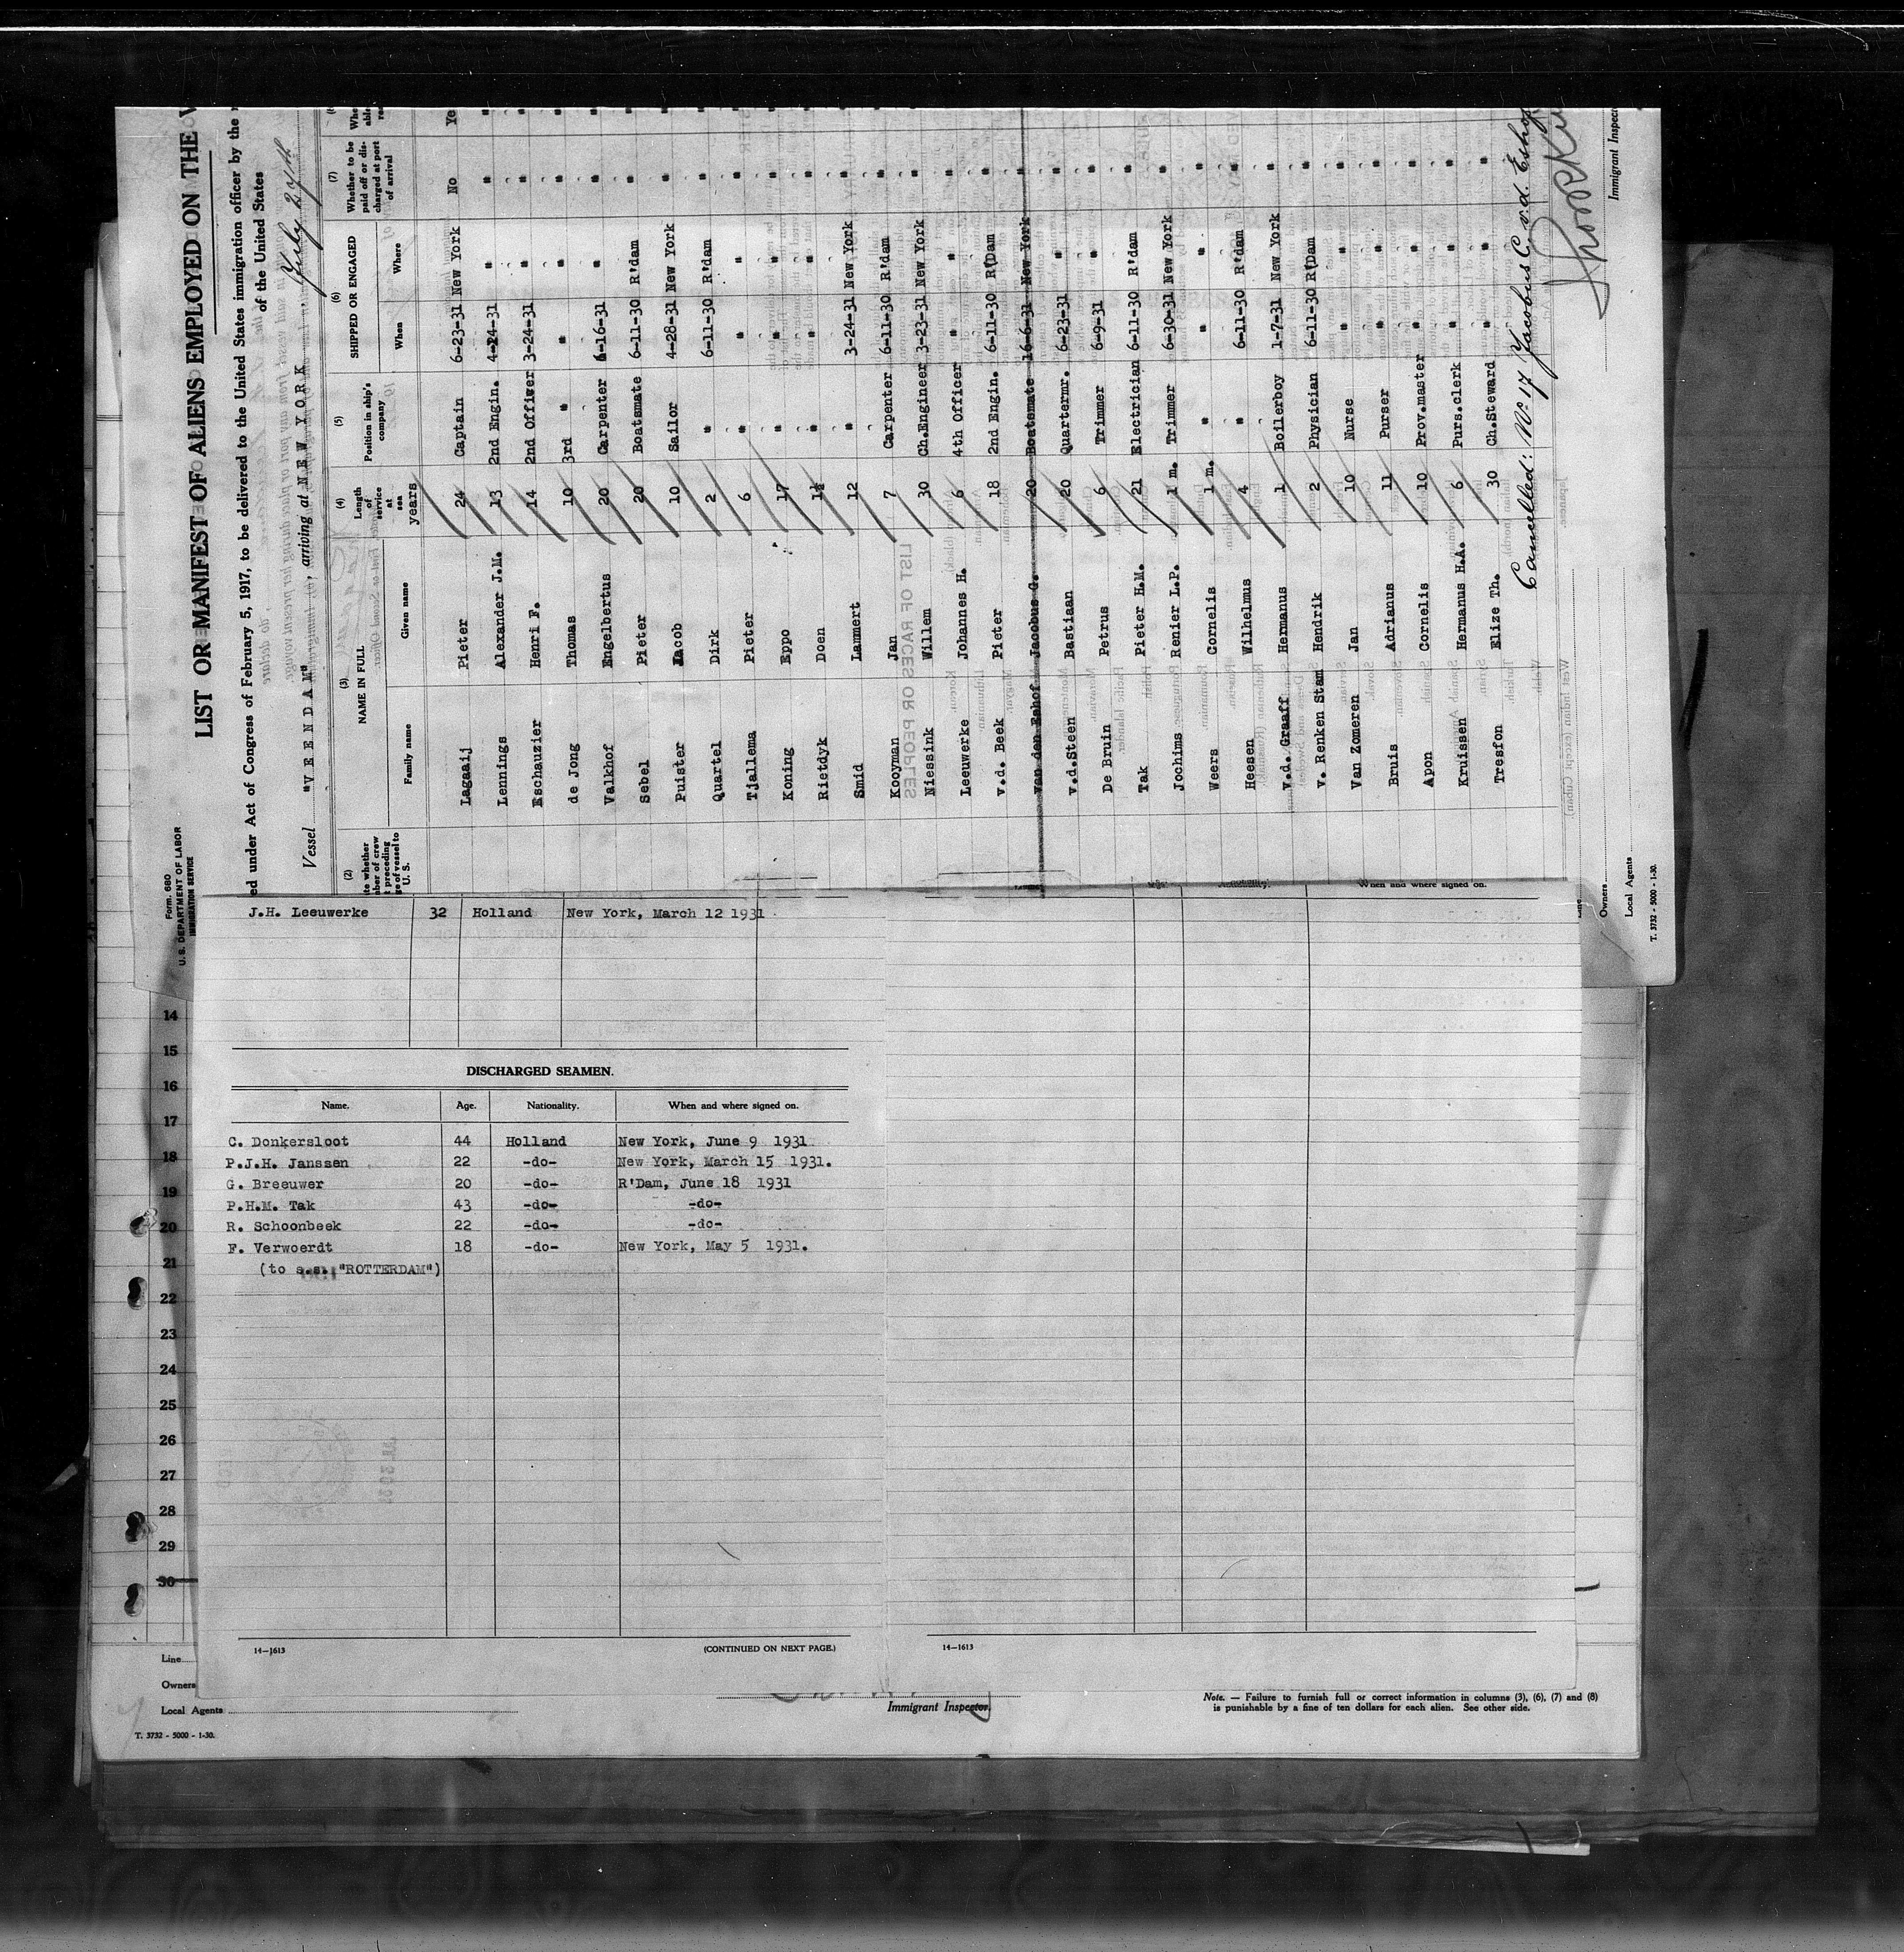 Form. 680
U.S. DEPARTMENT OF LABOR
IMMIGRATION SERVICE
LIST OR MANIFEST OF ALIENS EMPLOYED ON THE V
ed under Act of Congress of February 5, 1917, to be delivered to the United States immigration officer by the
of the United States
Vessel "VEENDAM", arriving at NEW YORK, July 27th
(2) (3) NAME IN FULL (4) Length of service at sea years (5) Position in ship's company (6) SHIPPED OR ENGAGED (7) Whether to be paid off or discharged at port of arrival
Family name Given name When Where
Lagaaij Pieter 24 Captain 6-23-31 New York No Ye
Lennings Alexander J.M. 13 2nd Engin. 4-24-31 " " "
Eschauzier Henri F. 14 2nd Officer 3-24-31 " " "
de Jong Thomas 10 3rd " " " " "
Valkhof Engelbertus 20 Carpenter 6-16-31 " " "
Sebel Pieter 20 Boatsmate 6-11-30 R'dam " "
Puister Jacob 10 Sailor 4-28-31 New York " "
Quartel Dirk 2 " 6-11-30 R'dam " "
Tjallema Pieter 6 " " " " "
Koning Eppo 17 " " " " "
Rietdyk Doen 1½ " " " " "
Smid Lammert 12 " 3-24-31 New York " "
Kooyman Jan 7 Carpenter 6-11-30 R'dam " "
Niessink Willem 30 Ch.Engineer 3-23-31 New York " "
Leeuwerke Johannes H. 6 4th Officer " " " "
v.d. Beek Pieter 18 2nd Engin. 6-11-30 R'Dam " "
Van den Eshof Jacobus G. 20 Boatsmate 16-6-31 New York " "
v.d.Steen Bastiaan 20 Quartermr. 6-23-31 " " "
De Bruin Petrus 6 Trimmer 6-9-31 " " "
Tak Pieter H.M. 21 Electrician 6-11-30 R'dam " "
Jochims Renier L.P. 1 m. Trimmer 6-30-31 New York " "
Weers Cornelis 1 m. " " " " "
Heesen Wilhelmus 4 " 6-11-30 R'dam " "
v.d. Graaff Hermanus 1 Boilerboy 1-7-31 New York " "
v. Renken Stam Hendrik 2 Physician 6-11-30 R'Dam " "
Van Zomeren Jan 10 Nurse " " " "
Bruis Adrianus 11 Purser " " " "
Apon Cornelis 10 Prov.master " " " "
Kruissen Hermanus H.A. 6 Purs.clerk " " " "
Tresfon Elize Th. 30 Ch.Steward " " " "
Cancelled: No 17 Jacobus C. v.d. Eshof
Immigrant Inspec
Owners
Local Agents
T. 3732 - 5000 - 1-30.
When and where signed on.
J.H. Leeuwerke 32 Holland New York, March 12 1931
DISCHARGED SEAMEN.
Name. Age. Nationality. When and where signed on.
C. Donkersloot 44 Holland New York, June 9 1931
P.J.H. Janssen 22 -do- New York, March 15 1931.
G. Breeuwer 20 -do- R'Dam, June 18 1931
P.H.M. Tak 43 -do- -do-
R. Schoonbeek 22 -do- -do-
F. Verwoerdt 18 -do- New York, May 5 1931.
(to s.s. "ROTTERDAM")
14
15
16
17
18
19
20
21
22
23
24
25
26
27
28
29
30
14—1613 (CONTINUED ON NEXT PAGE.) 14—1613
Line
Owners
Local Agents
Immigrant Inspector.
Note. — Failure to furnish full or correct information in columns (3), (6), (7) and (8)
is punishable by a fine of ten dollars for each alien. See other side.
T. 3732 - 5000 - 1-30.